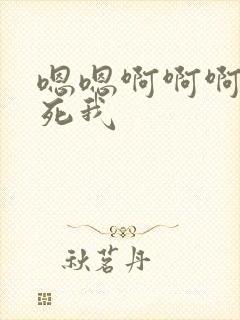 嗯嗯啊啊啊
死我
秋茗丹